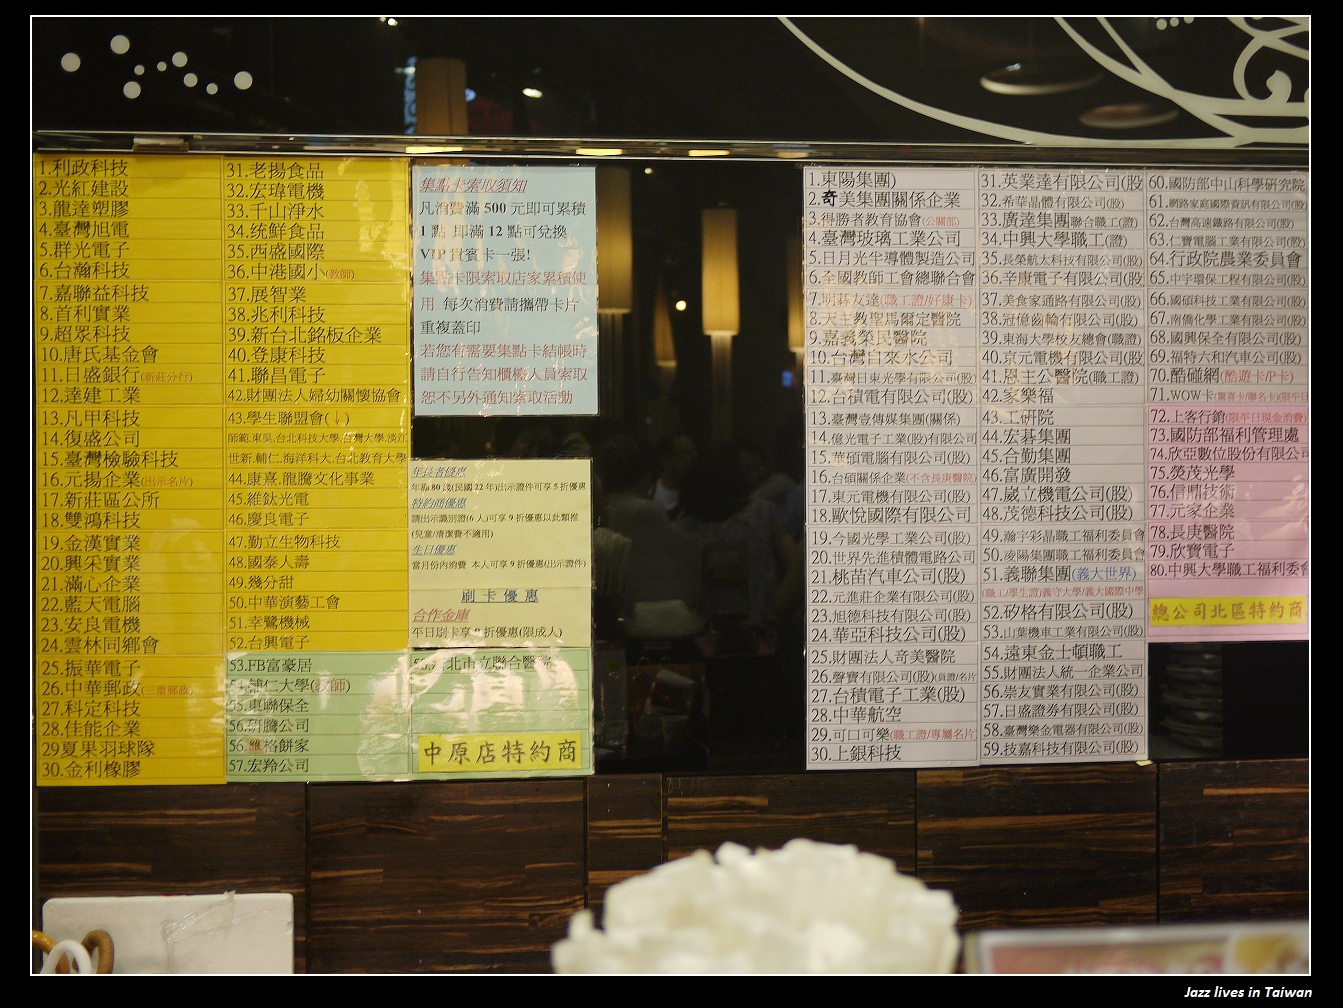 1.利政科技
2.光紅建設
3.龍達塑膠
4.臺灣旭電
5.群光電子
6.台瀚科技
7.嘉聯益科技
8.首利實業
9.超眾科技
10.唐氏基金會
11.日盛銀行(新莊分行)
12.達建工業
13.凡甲科技
14.復盛公司
15.臺灣檢驗科技
16.元揚企業(出示名片)
17.新莊區公所
18.雙鴻科技
19.金漢實業
20.興采實業
21.滿心企業
22.藍天電腦
23.安良電機
24.雲林同鄉會
25.振華電子
26.中華郵政(三重郵政)
27.科定科技
28.佳能企業
29夏果羽球隊
30.金利橡膠
31.老揚食品
32.宏瑋電機
33.千山淨水
34.統鮮食品
35.西盛國際
36.中港國小(教師)
37.展智業
38.兆利科技
39.新台北銘板企業
40.登康科技
41.聯昌電子
42.財團法人婦幼關懷協會
43.學生聯盟會(↓)
師範.東吳.台北科技大學.台灣大學.淡江
世新.輔仁.海洋科大.台北教育大學
44.康熹.龍騰文化事業
45.維鈦光電
46.慶良電子
47.勤立生物科技
48.國泰人壽
49.幾分甜
50.中華演藝工會
51.幸鷺機械
52.台興電子
53.FB富豪居
54.輔仁大學(教師)
55.東聯保全
56.研騰公司
56.維格餅家
57.宏羚公司
集點卡索取須知
凡消費滿 500 元即可累積
1 點 即滿 12 點可兌換
VIP 貴賓卡一張!
集點卡限索取店家累積使
用 每次消費請攜帶卡片
重複蓋印
若您有需要集點卡結帳時
請自行告知櫃檯人員索取
恕不另外通知索取活動
年長者優惠
年滿 80 歲(民國 22 年)出示證件可享 5 折優惠
特約商優惠
請出示識別證(6 人)可享 9 折優惠以此類推
(兒童/清潔費不適用)
生日優惠
當月份內消費 本人可享 9 折優惠(出示證件)
刷 卡 優 惠
合作金庫
平日刷卡享 9 折優惠(限成人)
北市立聯合醫院
中原店特約商
1.東陽集團)
2.奇美集團關係企業
3.得勝者教育協會(公關部)
4.臺灣玻璃工業公司
5.日月光半導體製造公司
6.全國教師工會總聯合會
7.明碁友達(職工證/好康卡)
8.天主教聖馬爾定醫院
9.嘉義榮民醫院
10.台灣自來水公司
11.臺灣日東光學有限公司(股)
12.台積電有限公司(股)
13.臺灣壹傳媒集團(關係)
14.億光電子工業(股)有限公司
15.華碩電腦有限公司(股)
16.台碩關係企業(不含長庚醫院)
17.東元電機有限公司(股)
18.歐悅國際有限公司(股)
19.今國光學工業公司(股)
20.世界先進積體電路公司
21.桃苗汽車公司(股)
22.元進莊企業有限公司(股)
23.旭德科技有限公司(股)
24.華亞科技公司(股)
25.財團法人奇美醫院
26.聲寶有限公司(股)(員證/名片
27.台積電子工業(股)
28.中華航空
29.可口可樂(職工證/專屬名片
30.上銀科技
31.英業達有限公司(股
32.希華晶體有限公司(股)
33.廣達集團聯合職工(證)
34.中興大學職工(證)
35.長榮航太科技有限公司(股)
36.辛康電子有限公司(股)
37.美食家通路有限公司(股)
38.冠億齒輪有限公司(股)
39.東海大學校友總會(職證)
40.京元電機有限公司(股)
41.恩主公醫院(職工證)
42.家樂福
43.工研院
44.宏碁集團
45.台勤集團
46.富廣開發
47.崴立機電公司(股)
48.茂德科技公司(股)
49.瀚宇彩晶職工福利委員會
50.凌陽集團職工福利委員會
51.義聯集團(義大世界)
(職工/學生證)義守大學/義大國際中學
52.矽格有限公司(股)
53.山葉機車工業有限公司(股)
54.遠東金士頓職工
55.財團法人統一企業公司
56.崇友實業有限公司(股)
57.日盛證券有限公司(股)
58.臺灣樂金電器有限公司(股)
59.技嘉科技有限公司(股)
60.國防部中山科學研究院
61.網路家庭國際資訊有限公司(股)
62.台灣高速鐵路有限公司(股)
63.仁寶電腦工業有限公司(股)
64.行政院農業委員會
65.中宇環保工程有限公司(股)
66.國碩科技工業有限公司(股)
67.南僑化學工業有限公司(股)
68.國興保全有限公司(股)
69.福特六和汽車公司(股)
70.酷碰網(酷遊卡/P卡)
71.WOW卡(驚喜卡/聯名卡)(限平日
72.上客行銷(限平日現金消費)
73.國防部福利管理處
74.欣亞數位股份有限公司
75.熒茂光學
76.信鼎技術
77.元家企業
78.長庚醫院
79.欣寶電子
80.中興大學職工福利委會
總公司北區特約商
Jazz lives in Taiwan